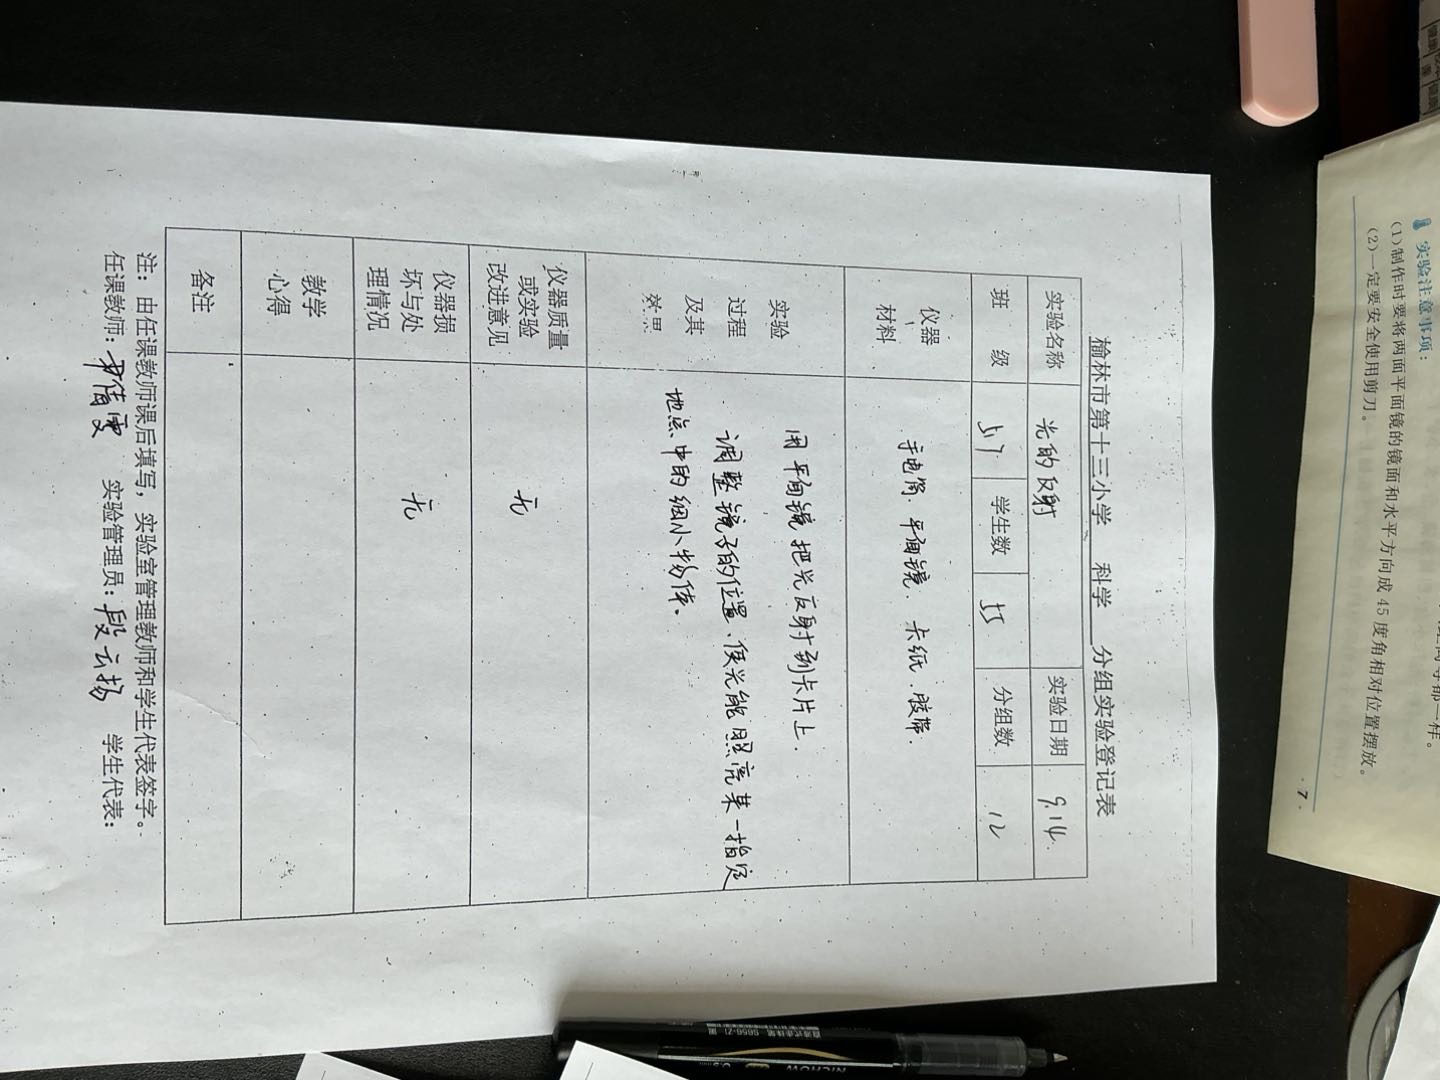 榆林市第十三小学 科学 分组实验登记表
实验名称 光的反射 实验日期 9.14
班 级 5.7 学生数 55 分组数 12
仪器
材料
手电筒、平面镜、卡纸、胶带.
实验
过程
及其
效果
用平面镜把光反射到卡片上.
调整镜子的位置、使光能照亮某一指定
地点中的细小物体.
仪器质量
或实验
改进意见
无
仪器损
坏与处
理情况
无
教学
心得
备注
注：由任课教师课后填写，实验室管理教师和学生代表签字。
任课教师： 实验管理员：段云扬 学生代表：
实验注意事项：
(1)制作时要将两面平面镜的镜面和水平方向成 45 度角相对位置摆放。
(2)一定要安全使用剪刀。
· 7 ·
都一样。
NICHOW